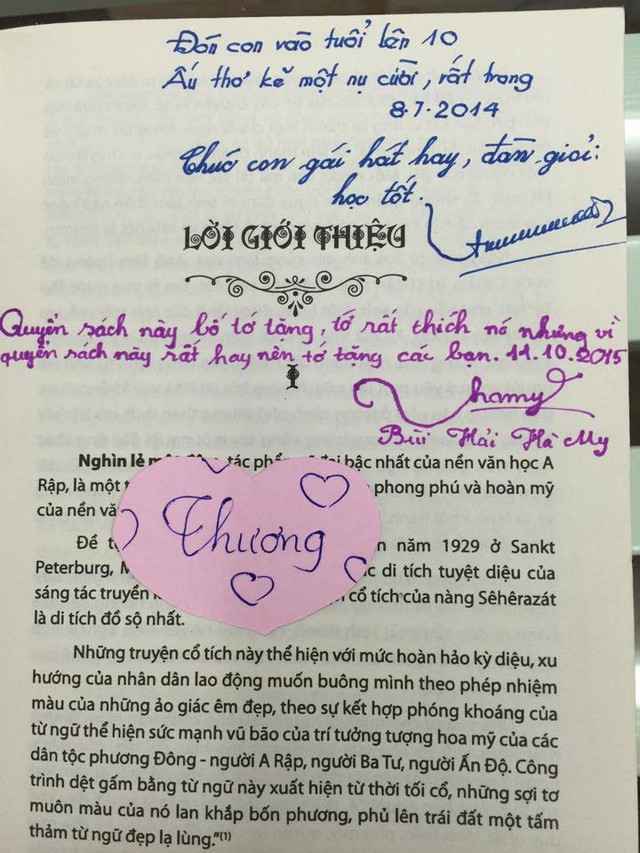 Đón con vào tuổi lên 10
Ấu thơ kẽ một nụ cười, rất trong
8.7.2014
Chúc con gái hát hay, đàn giỏi:
học tốt.
LỜI GIỚI THIỆU
Quyển sách này bố tớ tặng, tớ rất thích nó nhưng vì
quyển sách này rất hay nên tớ tặng các bạn. 11.10.2015
I
Hamy
Bùi Hải Hà My
Nghìn lẻ một đêm, tác phẩm vĩ đại bậc nhất của nền văn học A
Rập, là một phong phú và hoàn mỹ
của nền
Thương
Để năm 1929 ở Sankt
Peterburg, di tích tuyệt diệu của
sáng tác truyền cổ tích của nàng Sêhêrazát
là di tích đồ sộ nhất.
Những truyện cổ tích này thể hiện với mức hoàn hảo kỳ diệu, xu
hướng của nhân dân lao động muốn buông mình theo phép nhiệm
màu của những ảo giác êm đẹp, theo sự kết hợp phóng khoáng của
từ ngữ thể hiện sức mạnh vũ bão của trí tưởng tượng hoa mỹ của các
dân tộc phương Đông - người A Rập, người Ba Tư, người Ấn Độ. Công
trình dệt gấm bằng từ ngữ này xuất hiện từ thời tối cổ, những sợi tơ
muôn màu của nó lan khắp bốn phương, phủ lên trái đất một tấm
thảm từ ngữ đẹp lạ lùng."(1)